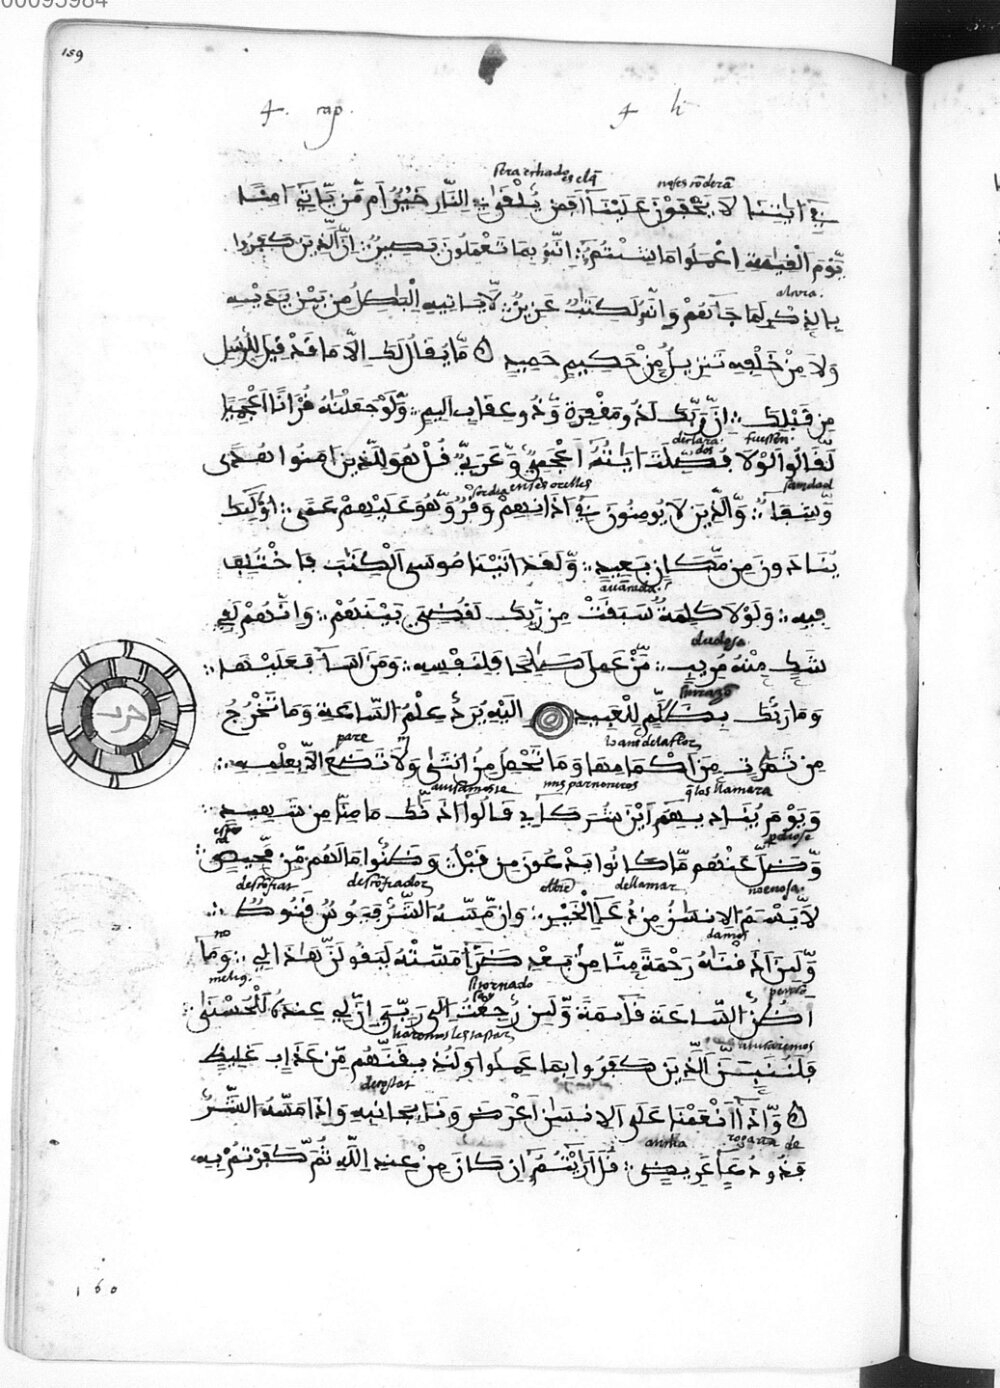 00095984
159
4. rap.
4 h
sera echado es el q̃
no se escōderã
في ءايتنا لا يخفون علينا أفمن يلقى في النار خير أم من ياتي ءامنا
يوم القيمة اعملوا ما شئتم إنه بما تعملون بصير إن الذين كفروا
بالذكر لما جاءهم وإنه لكتب عزيز لا ياتيه البطل من بين يديه
ولا من خلفه تنزيل من حكيم حميد ما يقال لك إلا ما قد قيل للرسل
من قبلك إن ربك لذو مغفرة وذو عقاب اليم ولو جعلنه قرءانا أعجميا
declara dos
fuessen
لقالوا لولا فصلت ءايته أعجمي وعربي قل هو للذين ءامنوا هدى
sordia en ses orelles
sanidad
وشفاء والذين لا يومنون في ءاذانهم وقر وهو عليهم عمى أولئك
ينادون من مكان بعيد ولقد ءاتينا موسى الكتب فاختلف
فيه ولولا كلمة سبقت من ربك لقضي بينهم وإنهم لفي
dudosa
شك منه مريب من عمل صلحا فلنفسه ومن أساء فعليها
حزب
وما ربك بظلم للعبيد إليه يرد علم الساعة وما تخرج
pare
من ثمرت من أكمامها وما تحمل من أنثى ولا تضع إلا بعلمه
q̃ los llamara
ويوم يناديهم أين شركاءي قالوا ءاذنك ما منا من شهيد
وضل عنهم ما كانوا يدعون من قبل وظنوا ما لهم من محيص
dellamar
no enosa
لا يسئم الانسن من دعاء الخير وإن مسه الشر فيئوس قنوط
no
damos
ولئن أذقنه رحمة منا من بعد ضراء مسته ليقولن هذا لي وما
أظن الساعة قائمة ولئن رجعت إلى ربي إن لي عنده للحسنى
فلننبئن الذين كفروا بما عملوا ولنذيقنهم من عذاب غليظ
وإذا أنعمنا على الانسن أعرض ونئا بجانبه وإذا مسه الشر
ancha
rogaria de
فذو دعاء عريض قل أرءيتم إن كان من عند الله ثم كفرتم به
160